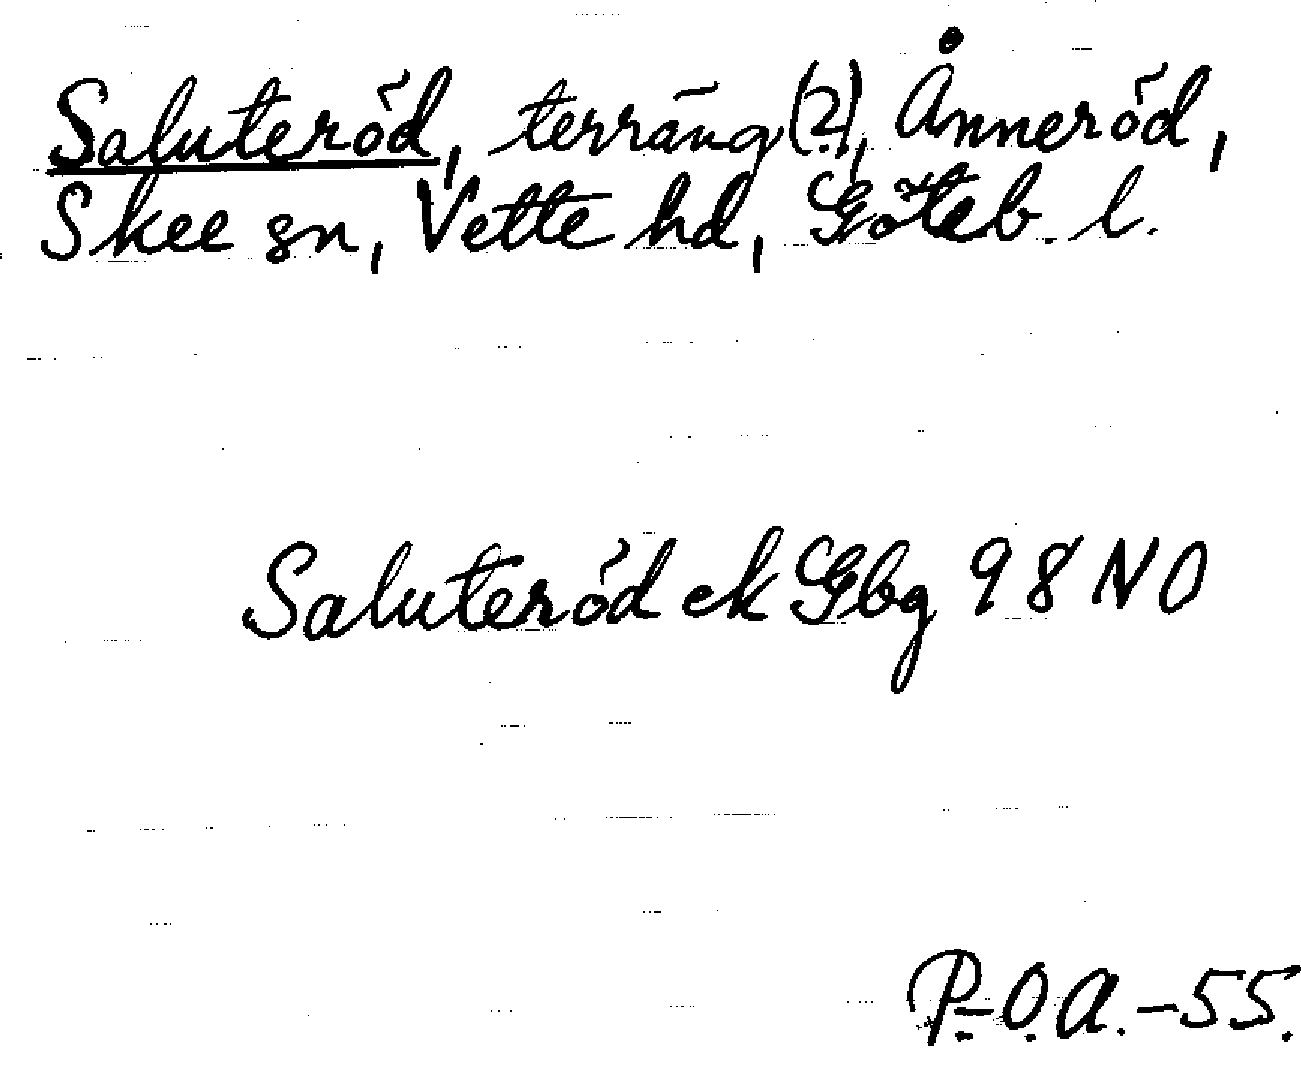 Saluteröd, terräng(?), Ånneröd,
Skee sn, Vette hd, Göteb. l.
Saluteröd ek Gbg 98 NO
P.-O.A.-55.